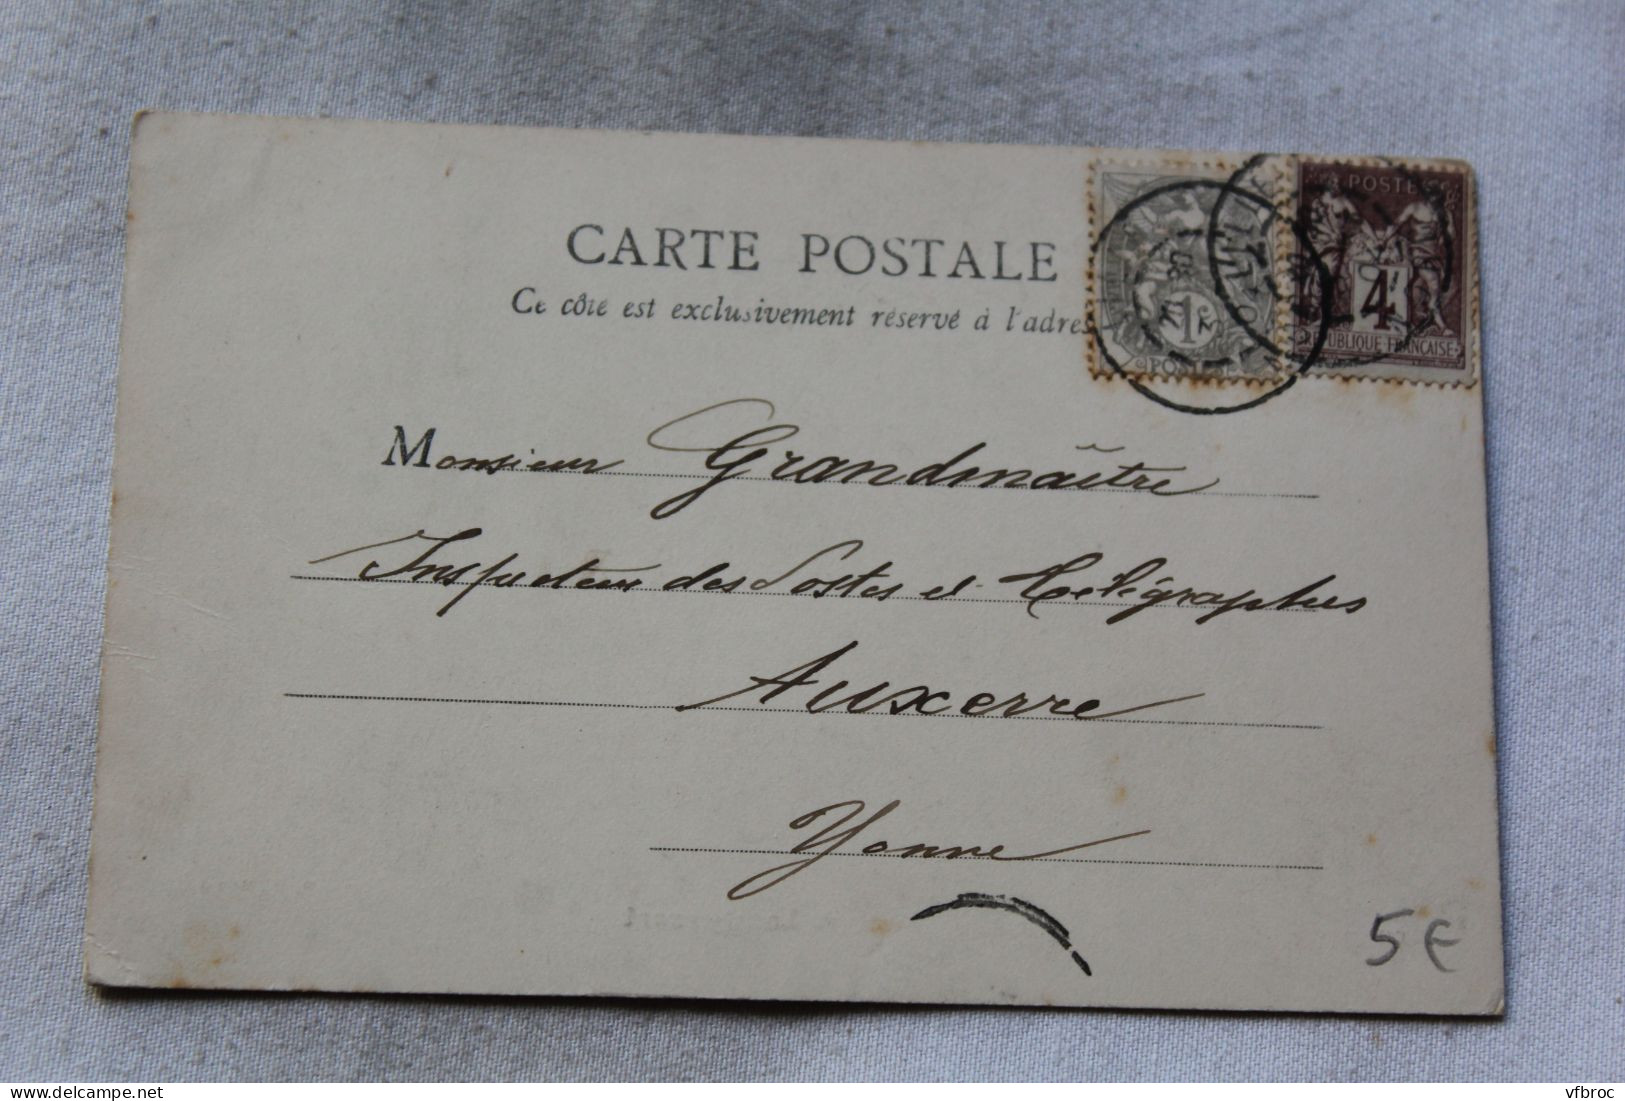 CARTE POSTALE
Ce côté est exclusivement réservé à l'adres
POSTES
1c
POSTE
4
REPUBLIQUE FRANÇAISE
Monsieur Grandmaître
Inspecteur des Postes et Télégraphes
Auxerre
Yonne
5€
vfbroc